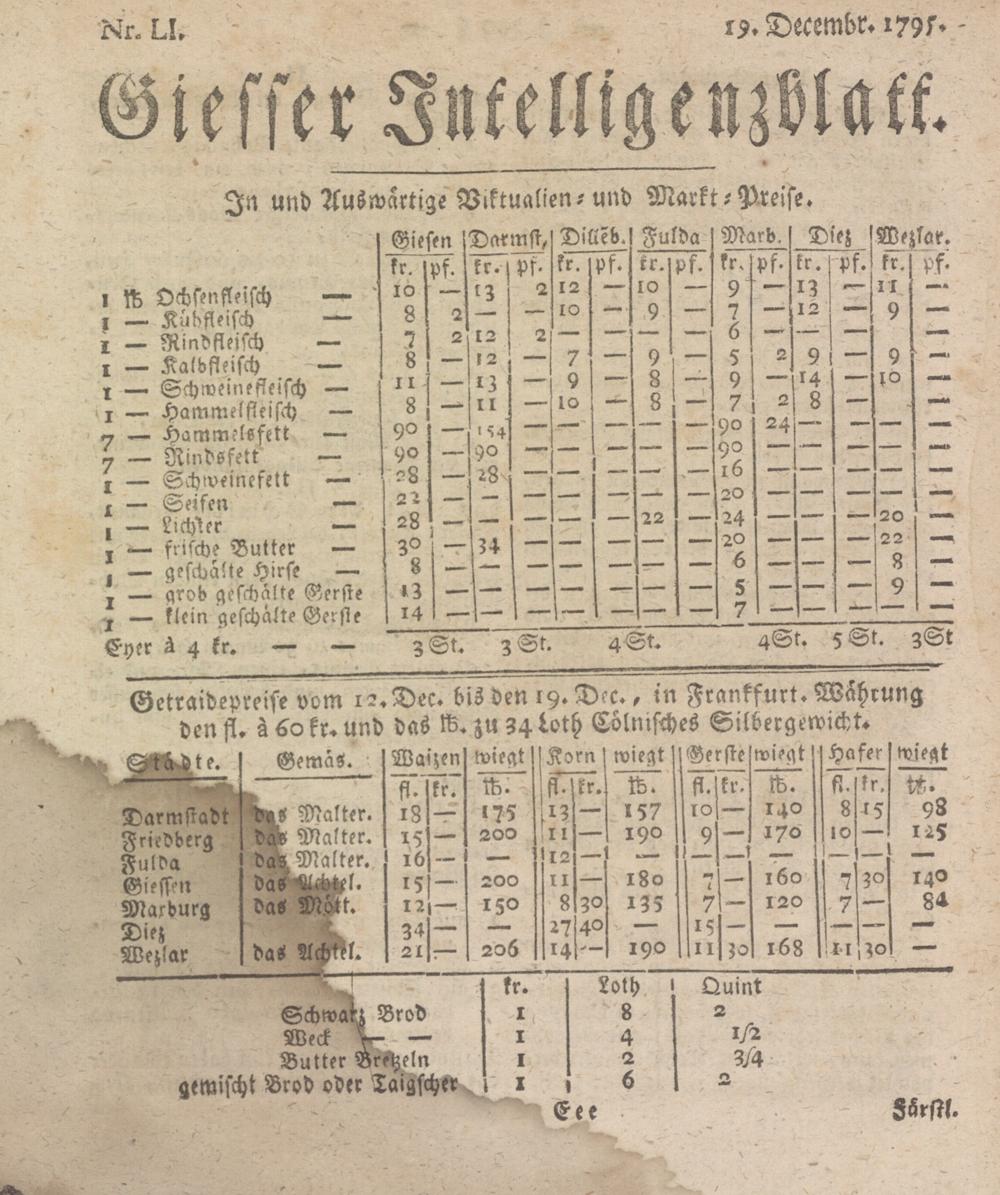 Nr. LI. 19. Decembr. 1795.
Giesser Intelligenzblatt.
In und Auswärtige Viktualien- und Markt-Preise.
Giesen Darmst, Dillēb. Fulda Marb. Diez Wezlar.
kr. pf. kr. pf. kr. pf. kr. pf. kr. pf. kr. pf. kr. pf.
1 ℔ Ochsenfleisch — 10 — 13 2 12 — 10 — 9 — 13 — 11 —
1 — Kühfleisch — 8 2 — — 10 — 9 — 7 — 12 — 9 —
1 — Rindfleisch — 7 2 12 2 — — — — 6 — — — — —
1 — Kalbfleisch — 8 — 12 — 7 — 9 — 5 2 9 — 9 —
1 — Schweinefleisch — 11 — 13 — 9 — 8 — 9 — 14 — 10 —
1 — Hammelfleisch — 8 — 11 — 10 — 8 — 7 2 8 — —
7 — Hammelsfett — 90 — 154 — — — — — 90 24 — — — —
7 — Rindsfett — 90 — 90 — — — — — 90 — — — — —
1 — Schweinefett — 28 — 28 — — — — — 16 — — — — —
1 — Seifen — 22 — — — — — — — 20 — — — — —
1 — Lichter — 28 — — — — — 22 — 24 — — — 20 —
1 — frische Butter — 30 — 34 — — — — — 20 — — — 22 —
1 — geschälte Hirse — 8 — — — — — — — 6 — — — 8 —
1 — grob geschälte Gerste 13 — — — — — — — 5 — — — 9 —
1 — klein geschälte Gerste 14 — — — — — — — 7 — — — — —
Eyer à 4 kr. — — 3 St. 3 St. 4 St. 4 St. 5 St. 3 St
Getraidepreise vom 12. Dec. bis den 19. Dec., in Frankfurt. Währung
den fl. à 60 kr. und das ℔. zu 34 Loth Cölnisches Silbergewicht.
Städte. Gemäs. Waizen wiegt Korn wiegt Gerste wiegt Hafer wiegt
fl. kr. ℔. fl. kr. ℔. fl. kr. ℔. fl. kr. ℔.
Darmstadt das Malter. 18 — 175 13 — 157 10 — 140 8 15 98
Friedberg das Malter. 15 — 200 11 — 190 9 — 170 10 — 125
Fulda das Malter. 16 — — 12 — — — — — — — —
Giessen das Achtel. 15 — 200 11 — 180 7 — 160 7 30 140
Marburg das Mött. 12 — 150 8 30 135 7 — 120 7 — 84
Diez 34 — — 27 40 — 15 — — — — —
Wezlar das Achtel. 21 — 206 14 — 190 11 30 168 11 30 —
kr. Loth Quint
Schwarz Brod 1 8 2
Weck — — 1 4 1/2
Butter Bretzeln 1 2 3/4
gemischt Brod oder Taigscher 1 6 2
Eee Fürstl.